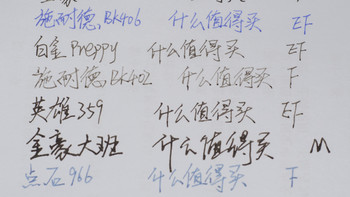 施耐德BK406 什么值得买 EF
白金Preppy 什么值得买 EF
施耐德BK402 什么值得买 F
英雄359 什么值得买 EF
金豪大班 什么值得买 M
点石966 什么值得买 F